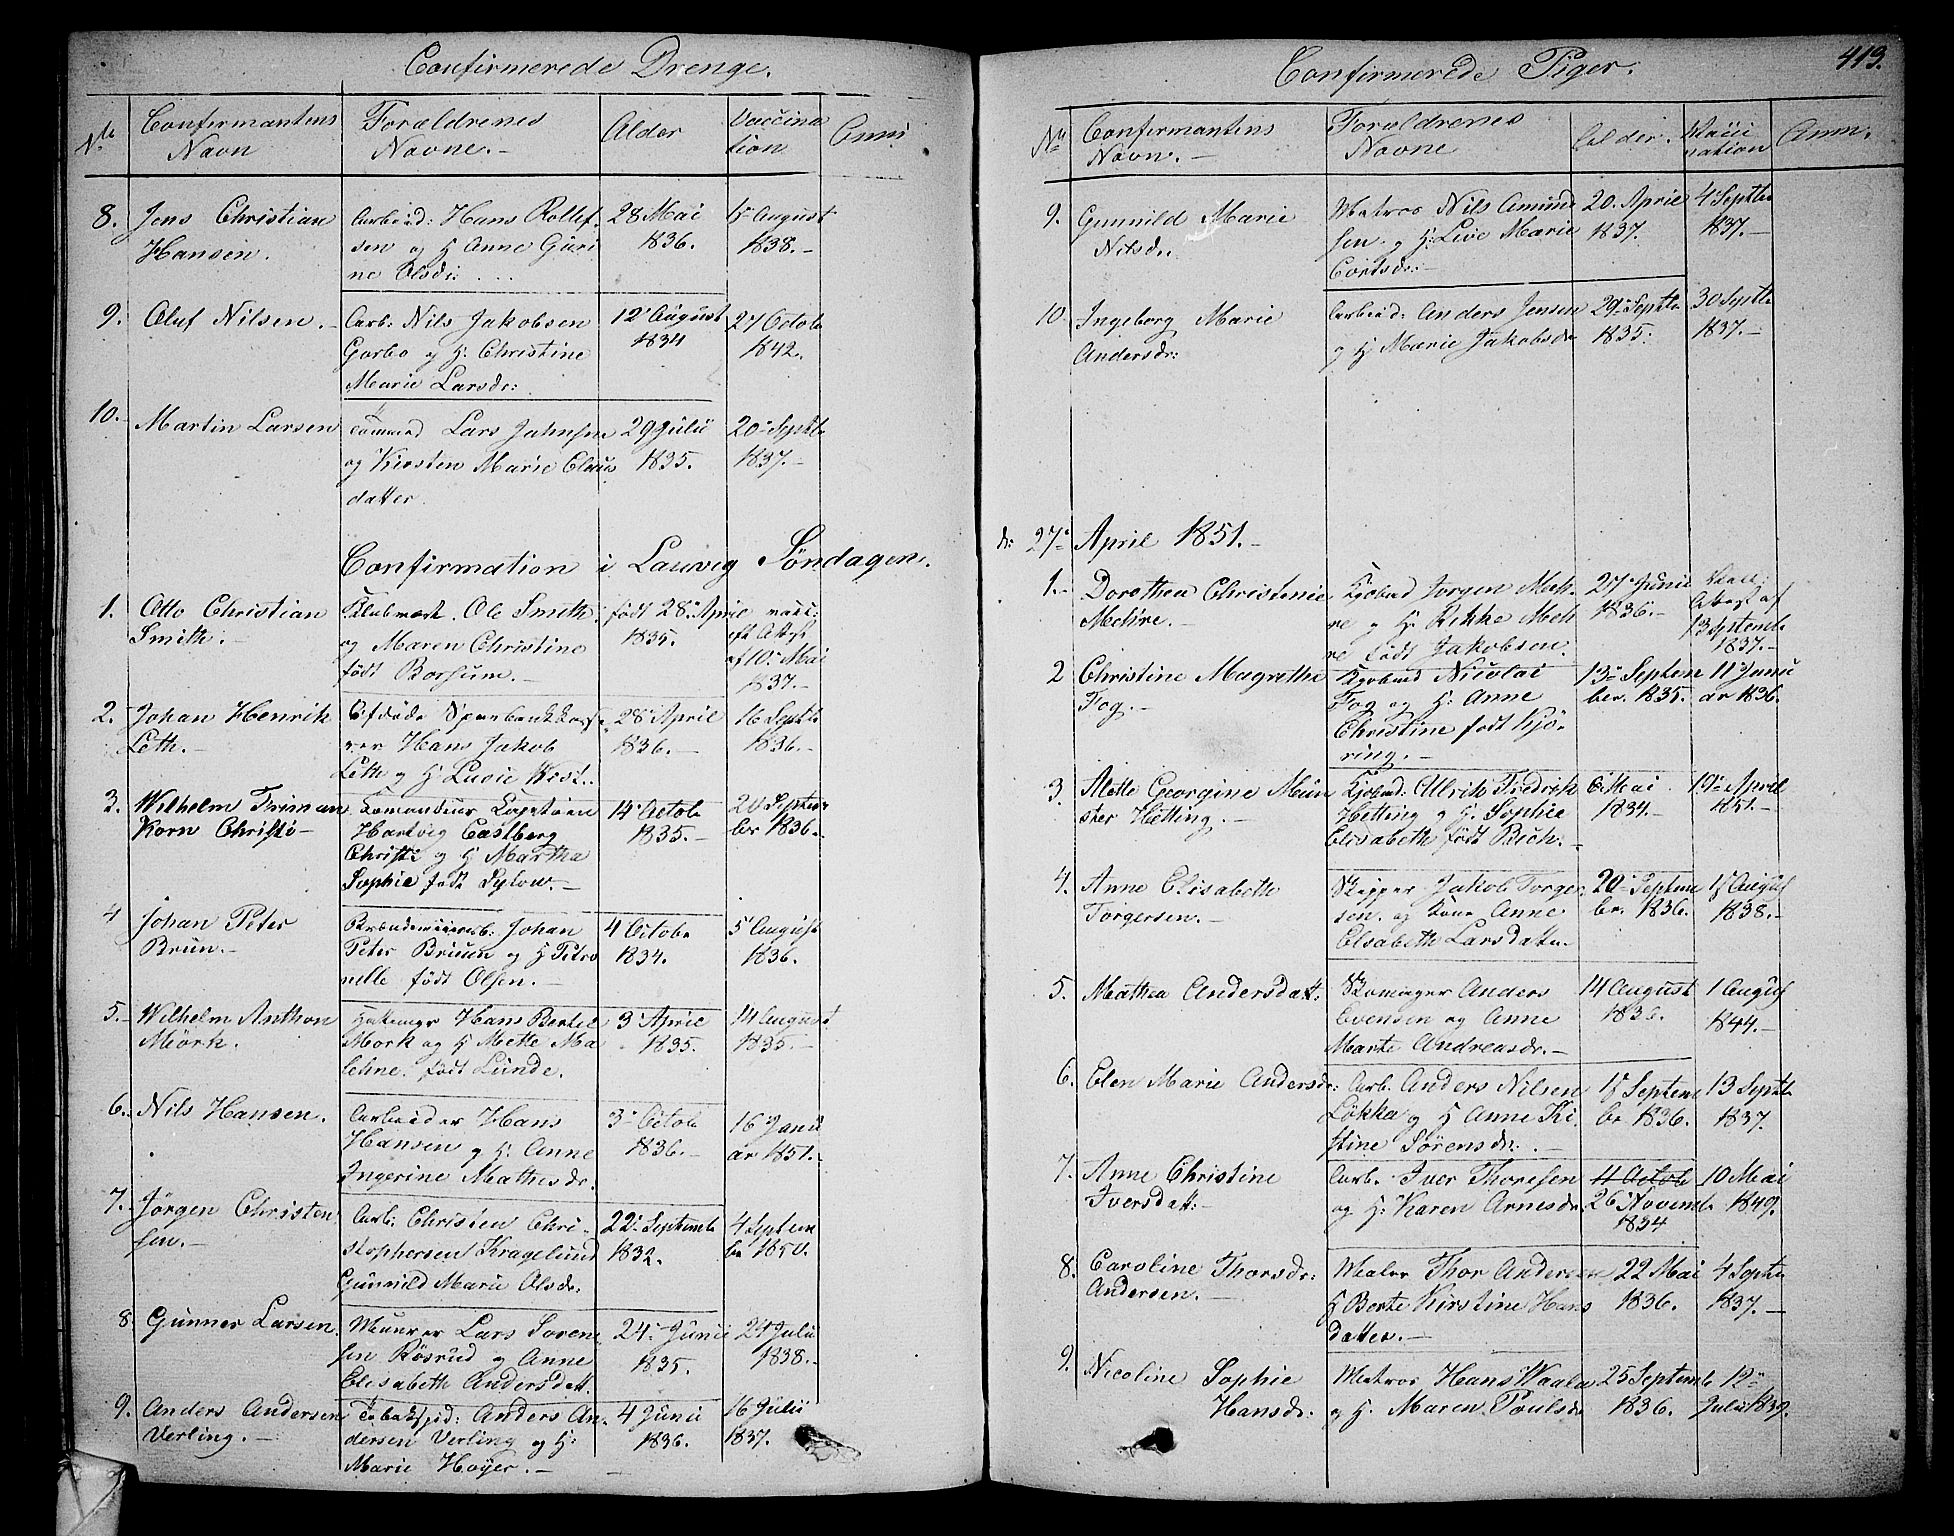 Confirmerede Drenge.
No Confirmantens Navn
Forældrenes Navne.-
Alder
Vaccina
tion
Anm:
8. Jens Christian
Hansen.
Arbeid: Hans Rollef
sen og H Anne Guri
ne Olsdr:
28 Mai
1836.
15 August
1838.-
9. Oluf Nilsen.-
Arb: Nils Jakobsen
Garbo og H. Christine
Marie Larsdr:
12 August
1834
27 Octob
1842.-
10. Martin Larsen
Lars Jahnsen
og Kirsten Marie Claus
datter.
29 Julii
1835.
20 Septb
1837.-
Confirmation i Laurvig Søndagen.
1. Otto Christian
Smith.-
Ole Smith
og Maren Christine
født Borsum.-
født 28 April
1835.
vacc:
eft Attest
af 10 Mai
1837.-
2. Johan Henrik
Leth.-
Afdøde Sparebankkasse
rer Hans Jakob
Leth og H Lucie Wist.-
28 April
1836.-
16 Septb
1836.-
3. Wilhelm Friman
Korn Christi-
Comandeur Capetain
Hartvig Castberg
Christi og H Martha
Sophie født Sylow.-
14 Octob
1835.-
20 Septem
ber 1836.-
4 Johan Peter
Bruun.-
Johan
Peter Bruun og H Petro
nelle født Olsen.-
4 Octobr
1834.
5 August
1836.
5.- Wilhelm Anthon
Miörk.
Hans Bertel
Mork og H Mette Ma
lehne. født Lunde.
3 April
1835.
14 August
1835.-
6. Nils Hansen.
Arbeider Hans
Hansen og H. Anne
Ingerine Mathesdr.
3 Octob
1836.-
16 Janu
ar 1851.-
7. Jörgen Christen
sen.-
Arb: Christen Chri-
stophersen Kragelund
Gunnild Marie Olsdr:
22 Septemb
1832.
4 Septem
br 1850.
8. Gunner Larsen.
Muurer Lars Soren
sen Rösrud og Anne
Elisabeth Andersdatt.
24 Junii
1835.
24 Julii
1838.-
9. Anders Andersen
Verling.-
Tobaksspid: Anders An
dersen Verling og H:
Marie Hoyer.-
4 Junii
1836.
16 Julii
1837.
Confirmerede Piger.
413.
No Confirmantens
Navn.-
Forældrenes
Navne
Alder.
Vacci
nation
Anm.
9. Gunnild Marie
Nilsdr.
Matros Nils Amund
sen og H: Live Marie
Cortsdr:-
20 April
1837.
4 Septbr
1837.-
10. Ingeborg Marie
Andersdr:
Arbeid: Anders Jensen
og H Marie Jakobsdr
29 Septb
1835.
30 Septb
1837.-
d: 27 April 1851.-
1.- Dorothea Christenie
Mehre.-
Kjøbmd Jorgen Meh-
re og H: Rikke Meh
re født Jakobsen.
27 Junii
1836.-
Attest af
13 Septemb
1837.-
2 Christine Magrethe
Fog.-
Kjøbmd Nicolai
Fog og H: Anne
Christine født Kjö-
ring.-
13 Septem
ber. 1835.
11 Janu
ar 1836.
3. Alette Georgine Mün
ster Hetting.-
Kjøbmd. Ulrik Fredrik
Hetting og H: Sophie
Elisabeth født Bich.-
6 Mai
1834.
19 April
1851.-
4. Anne Elisabeth
Torgersen.-
Skipper Jakob Torger
sen. og Kone Anne
Elsabeth Larsdatter
20 Septem
br. 1836.
15 August
1838.-
5. Mathea Andersdatt.
Skomager Anders
Evensen og Anne
Marte Andreasdr.-
14 August
1836.
1 August
1844.-
6. Elen Marie Andersdr:
Arb. Anders Nilsen
Lökka og H Anne Ki
stine Sörensdr.-
15 Septem
br 1836.
13 Septb
1837.
7. Anne Christine
Iversdatt:-
Arb. Iver Thoresen
og H: Karen Arnesdr.
11 Octob
26 Novemb.
1834
10 Mai
1849.
8. Caroline Thorsdr:
Andersen.-
Maler Thor Andersen
H Berte Kirstine Hans
datter.-
22 Mai
1836.
4 Septbr
1837.-
9. Nicoline Sophie
Hansdr:
Matros Hans Waala
og H. Maren Poulsdr
25 Septemb
1836.
12
Julii 1839.